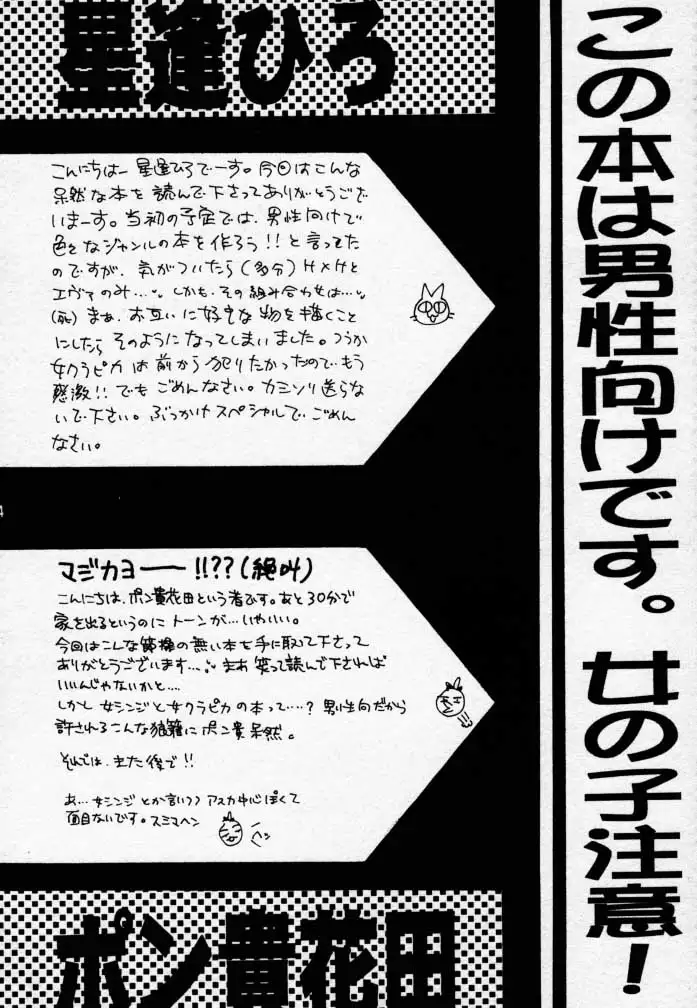 この本は男性向けです。女の子注意!
星逢ひろ
こんにちはー星逢ひろでーす。今回はこんな
呆然な本を読んで下さってありがとうござ
いまーす。当初の予定では、男性向けで
色々なジャンルの本を作ろう!!と言ってた
のですが、気がついたら(多分)H×Hと
エヴァのみ…。しかも、その組み合わせは…。
(死)まぁ、お互いに好きな物を描くこと
にしたらそのようになってしまいました。つうか
女クラピカは前から犯りたかったので、もう
感激!!でもごめんなさい。カミソリ送らな
いで下さい。ぶっかけスペシャルでごめん
なさい。
4
マジカヨーー!!??(絶叫)
こんにちは、ポン貴花田という者です。あと30分で
家を出るというのにトーンが…。いやいい。
今回はこんな節操の無い本を手に取って下さって
ありがとうございます…。まあ笑って読んで下されば
いいんじゃないかと…。
しかし女シンジと女クラピカの本って…?男性向だから
許されるこんな狼藉にポン貴呆然。
それでは、また後で!!
あ…女シンジとか言いつつアスカ中心ぽくて
面目ないです。スミマヘン
ヘン
ポン貴花田